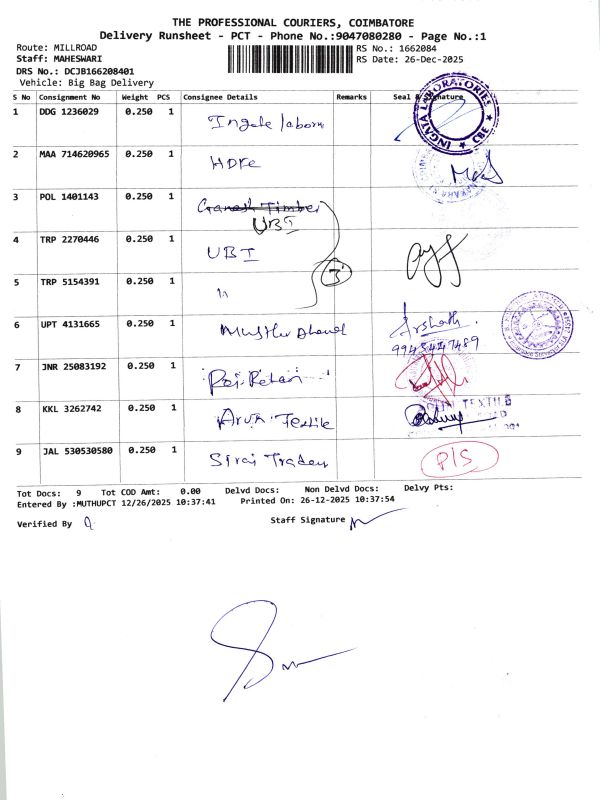 THE PROFESSIONAL COURIERS, COIMBATORE
Delivery Runsheet - PCT - Phone No.:9047080280 - Page No.:1
Route: MILLROAD
RS No.: 1662084
Staff: MAHESWARI
RS Date: 26-Dec-2025
DRS No.: DCJB166208401
Vehicle: Big Bag Delivery
S No Consignment No Weight PCS Consignee Details Remarks Seal & Signature
1 DDG 1236029 0.250 1 INGATA LABORATORIES CBE
2 MAA 714620965 0.250 1 HDFC
3 POL 1401143 0.250 1 Ganesh Timber
UBI
4 TRP 2270446 0.250 1 UBI
3
5 TRP 5154391 0.250 1
6 UPT 4131665 0.250 1 Arshath
7 JNR 25083192 0.250 1
8 KKL 3262742 0.250 1 Arun Textile
9 JAL 530530580 0.250 1 Siraj Traders P/S
Tot Docs: 9 Tot COD Amt: 0.00 Delvd Docs: Non Delvd Docs: Delvy Pts:
Entered By :MUTHUPCT 12/26/2025 10:37:41 Printed On: 26-12-2025 10:37:54
Verified By
Staff Signature